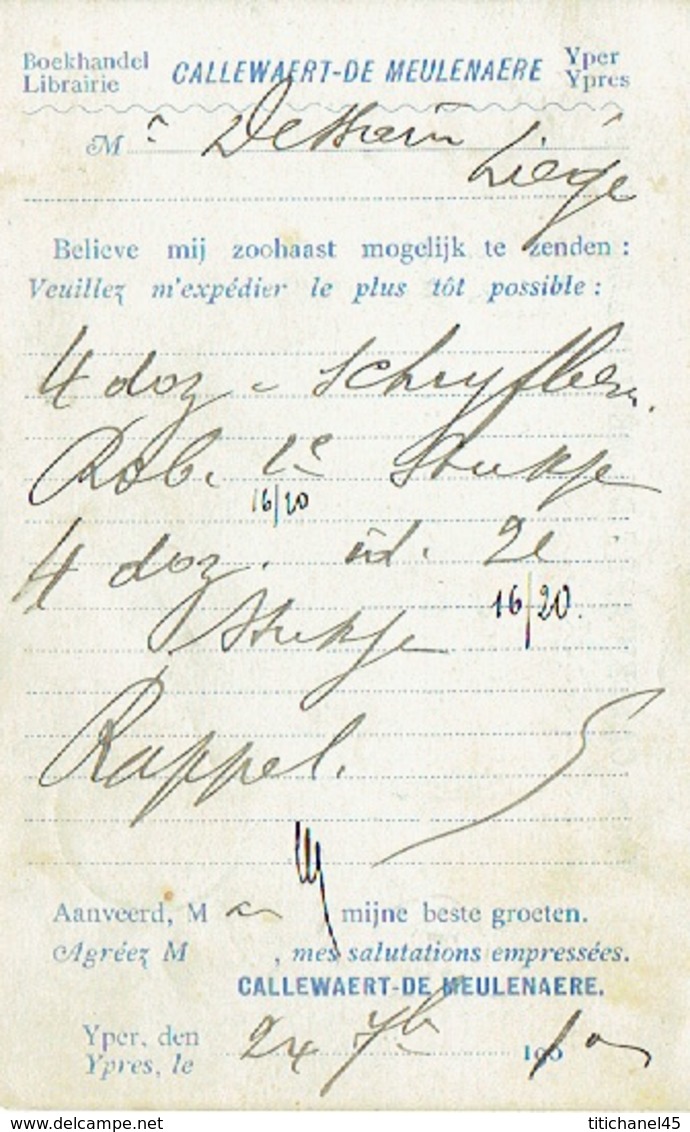 Boekhandel CALLEWAERT-DE MEULENAERE Yper
Librairie Ypres
M r Dessain
Liége
Believe mij zoohaast mogelijk te zenden :
Veuillez m'expédier le plus tôt possible :
4 doz - Schryfleer.
Rob. 1e Stukje
16/20
4 doz. id. 2e
16/20.
Stukje
Rappel.
Aanveerd, M mijne beste groeten.
Agréez M , mes salutations empressées.
CALLEWAERT-DE MEULENAERE.
Yper, den
Ypres, le 24 7b 190
www.delcampe.net titichanel45